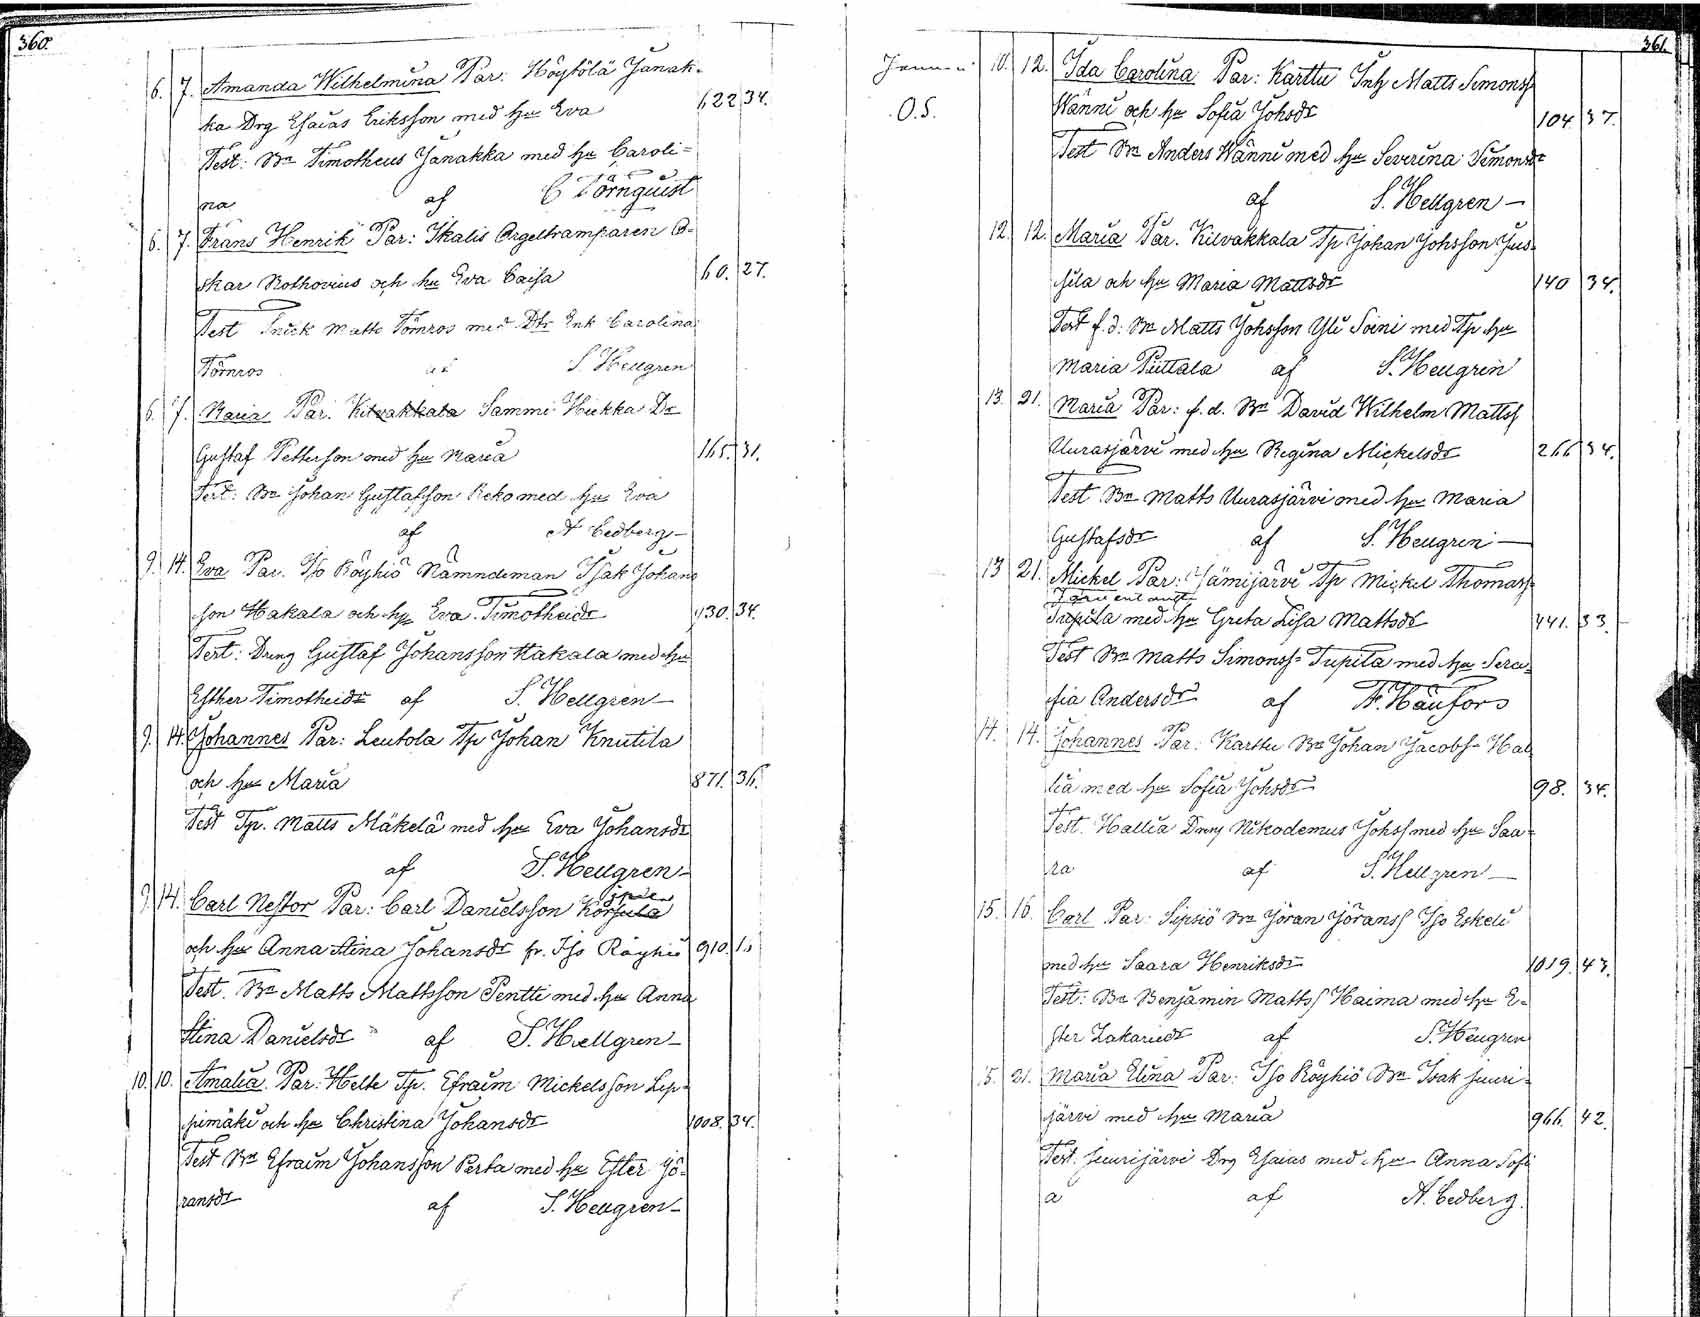 360.
6. 7. Amanda Wilhelmina Par: Höytölä Janak-
ka Drg Esaias Eriksson med hu Eva 622 34.
Test: Bn Timotheus Janakka med hu Caroli=
na af C Törnquist
6. 7. Frans Henrik Par: Ikalis Orgeltramparen O-
skar Rothovius och hu Eva Caisa 60. 27.
Test Snick Matts Törnros med Dtr Enk Carolina
Törnros af S. Hellgren
6. 7. Maria Par. Kilvakkala Sammi Hukka Dr
Gustaf Petterson med hu Maria 165. 31.
Test: Bn Johan Gustafsson Reko med hu Eva
af A Cedberg
9. 14. Eva Par. Iso Röyhiö Nämndeman Isak Johans
son Hakala och hu Eva Timotheidr 930. 34.
Test: Dreng Gustaf Johansson Hakala med hu
Esther Timotheidr af S. Hellgren
9. 14. Johannes Par: Leutola Tp Johan Knutila
och hu Maria 871. 36.
Test Tp. Matts Mäkelä med hu Eva Johansdr
af S. Hellgren
9. 14. Carl Nestor Par: Carl Danielsson
och hu Anna Stina Johansdr fr. Iso Röyhiö 910.
Test. Bn Matts Mattsson Pentti med hu Anna
Stina Danielsdr af S. Hellgren
10. 10. Amalia Par: Helle Tp. Efraim Mickelsson Lep-
pimäki och hu Christina Johansdr 1008. 34.
Test Bn Efraim Johansson Perta med hu Ester Jö-
ransdr af S. Hellgren
361.
10. 12. Ida Carolina Par: Karttu Inh Matts Simonss
O.S. Wänni och hu Sofia Johsdr 104. 37.
Test Bn Anders Wänni med hu Severina Simonsdr
af S. Hellgren
12. 12. Maria Par. Kilvakkala Tp Johan Johsson Jus-
sila och hu Maria Mattsdr 140 34.
Test f.d. Bn Matts Johsson Yli Soini med Tp hu
Maria Piittala af S. Hellgren
13. 21. Maria Par: f.d. Bn David Wilhelm Mattss
Uurasjärvi med hu Regina Mickelsdr 266 34.
Test Bn Matts Uurasjärvi med hu Maria
Gustafsdr af S. Hellgren
13 21. Mickel Par: Jämijärvi Tp Mickel Thomass
Tupila med hu Greta Lisa Mattsdr 441. 33.
Test Bn Matts Simonss Tupila med hu Sera-
fia Andersdr af
14. 14. Johannes Par: Karttu Bn Johan Jacobs Hal
lia med hu Sofia Johsdr 98. 34.
Test. Hallia Dreng Nikodemus Johss med hu Saa-
ra af S. Hellgren
15. 16. Carl Par: Sipsiö Bn Jöran Jöranss Iso Eskeli
med hu Saara Henriksdr 1019. 43.
Test: Bn Benjamin Mattss Haima med hu E-
ster Zakariedr af S. Hellgren
15. 21. Maria Elina Par: Iso Röyhiö Bn Isak Juuri-
järvi med hu Maria 966. 42.
Test. Juurijärvi Drg Esaias med hu Anna Sofi
a af A. Cedberg.